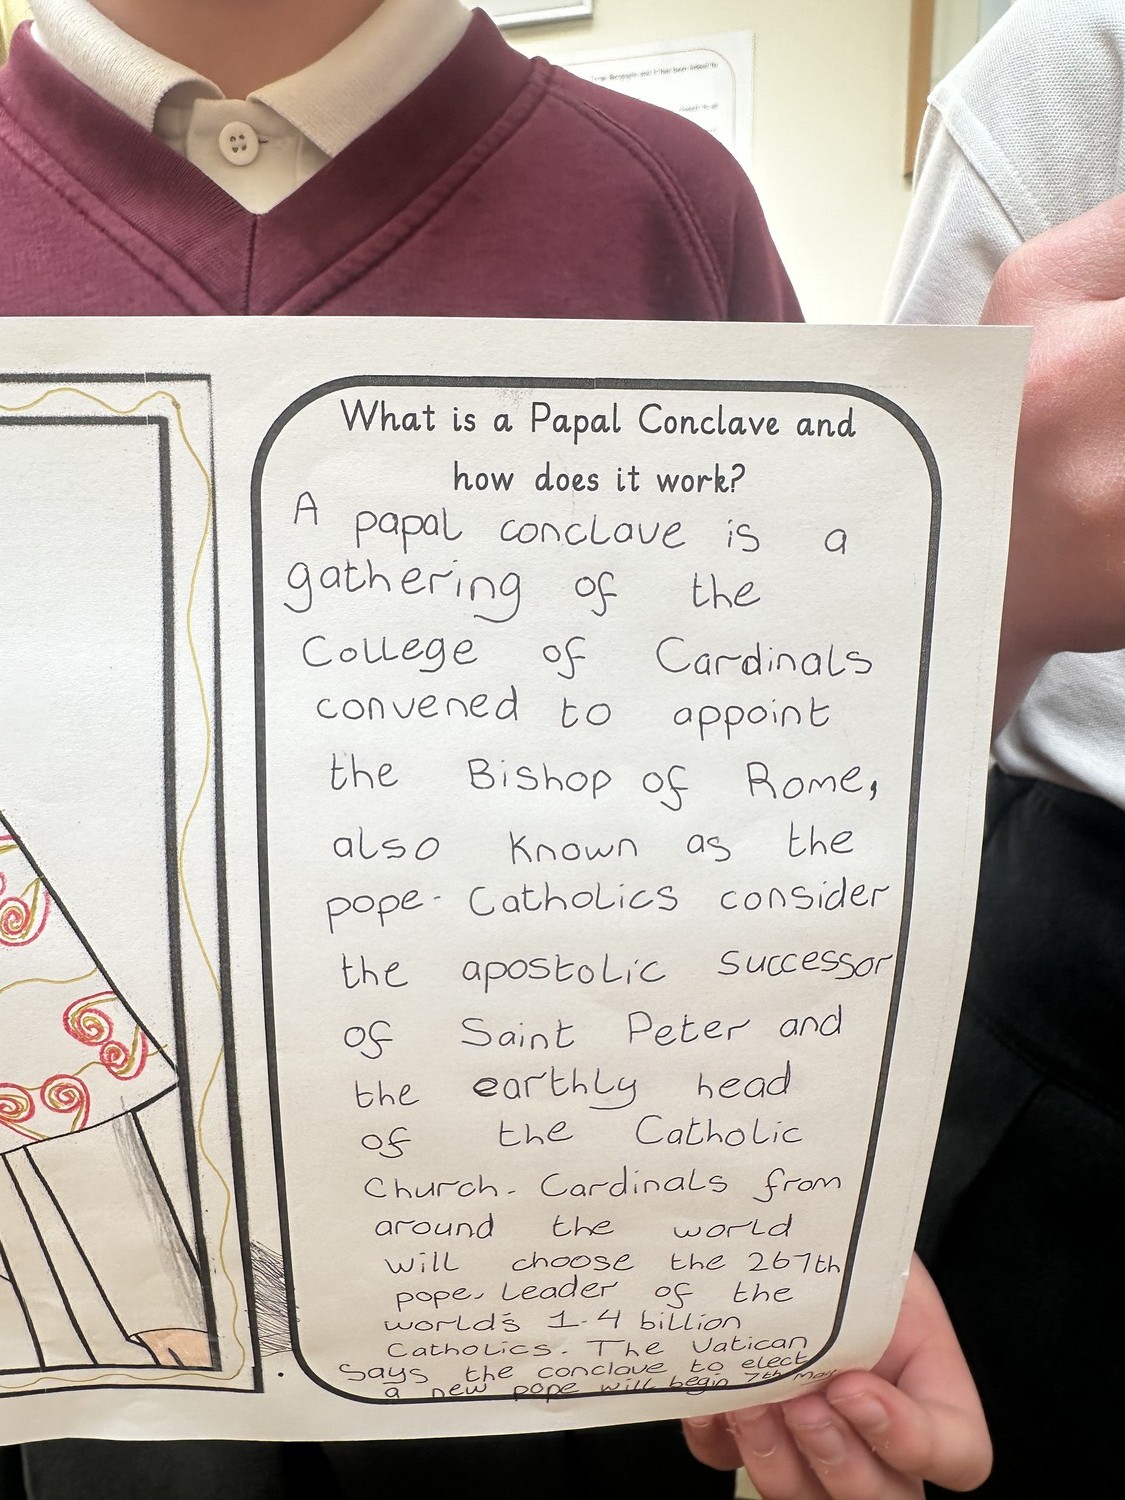 What is a Papal Conclave and
how does it work?
A papal conclave is a
gathering of the
College of Cardinals
convened to appoint
the Bishop of Rome,
also known as the
pope. Catholics consider
the apostolic successor
of Saint Peter and
the earthly head
of the Catholic
Church. Cardinals from
around the world
will choose the 267th
pope, leader of the
world's 1.4 billion
Catholics. The Vatican
Says the conclave to elect
a new pope will begin 7th may